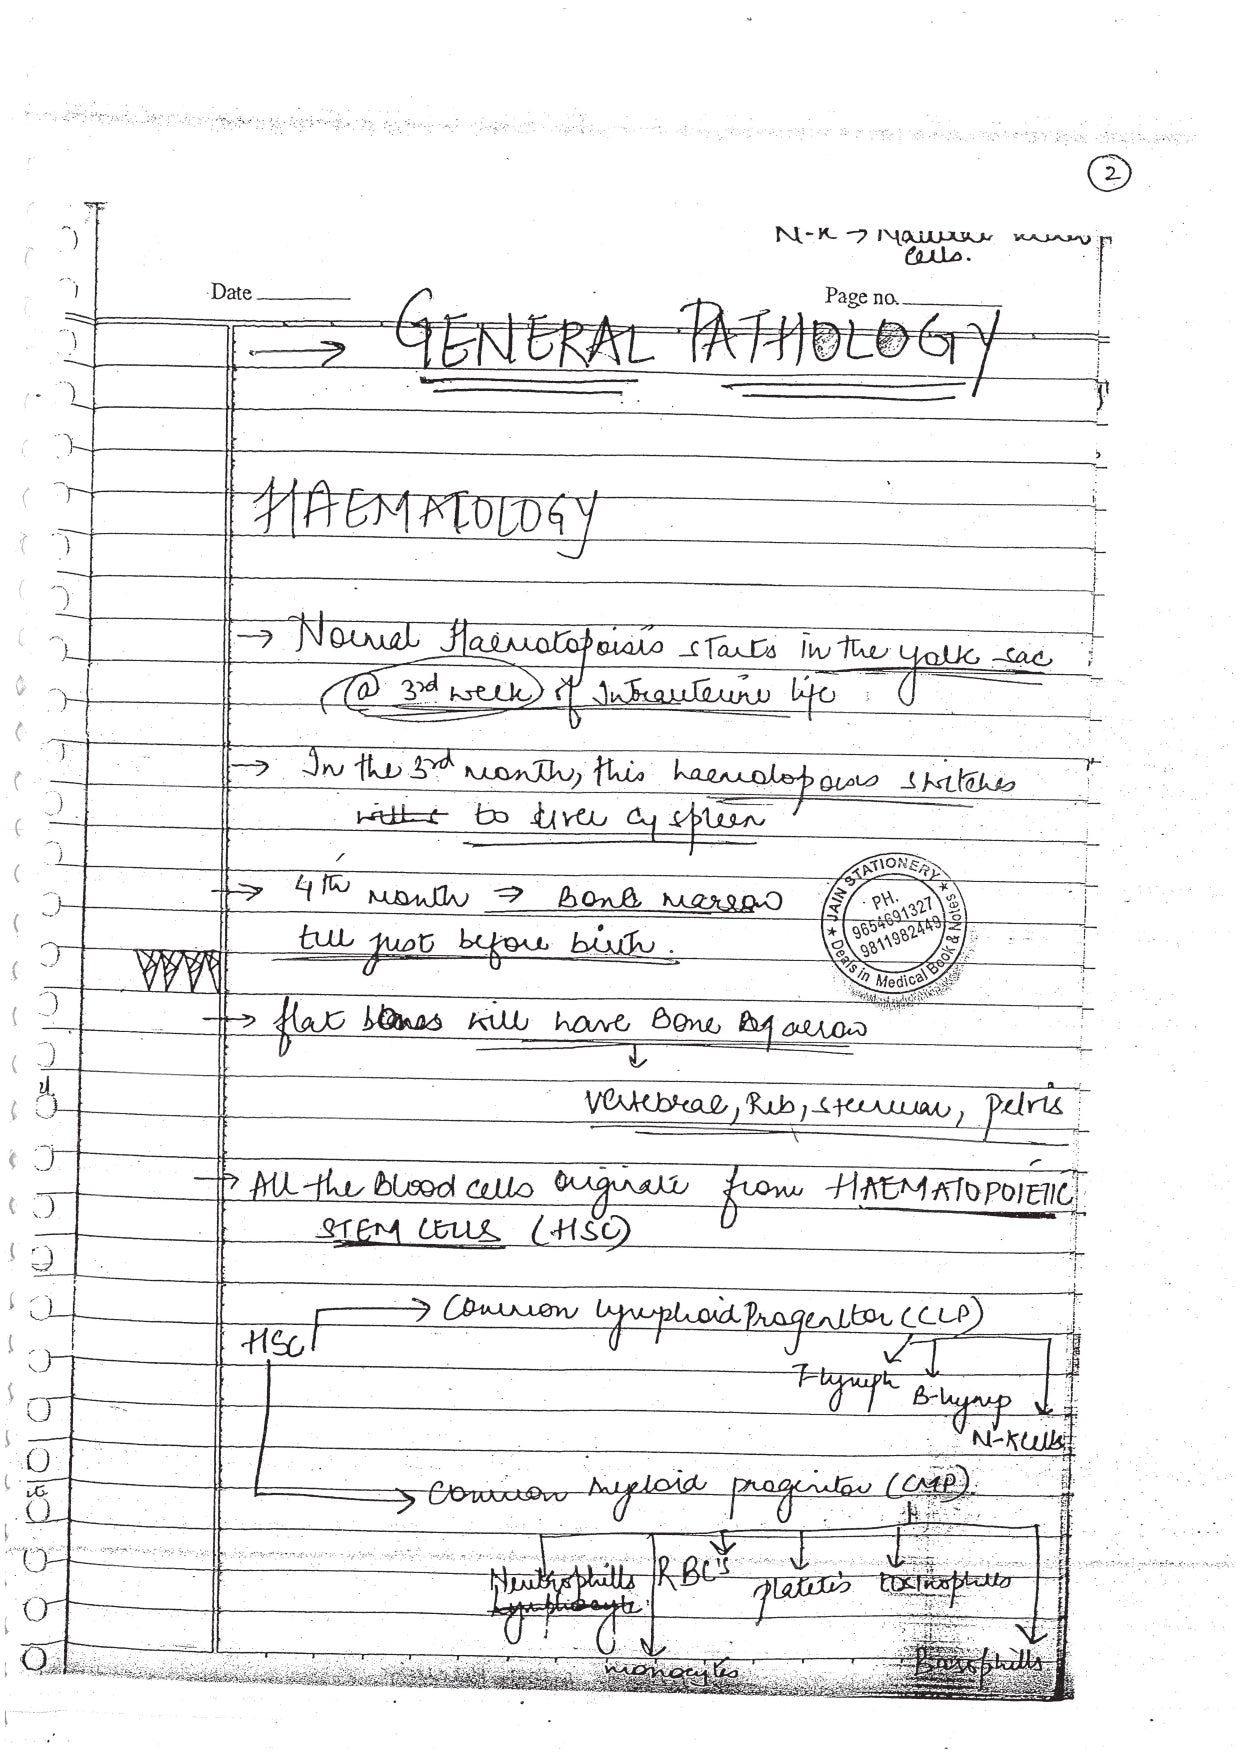 2
N-K → Natural killer
cells.
Date
Page no.
→ GENERAL PATHOLOGY
HAEMATOLOGY
→ Normal Haematopoisis starts in the yolk sac
@ 3rd week of Intrauterine life
→ In the 3rd month, this haematopoisis switches
to liver & spleen
→ 4th month → Bone marrow
till just before birth.
★ JAIN STATIONERY ★
PH.
9654691327
9811982449
Deals in Medical Book & Notes
→ flat bones will have Bone marrow
↓
Vertebrae, Rib, sternum, pelvis
→ All the Blood cells originate from HAEMATOPOIETIC
STEM CELLS (HSC)
→ Common lymphoid Progenitor (CLP)
HSC
T-lymph
B-lymp
N-K cells
→ Common myeloid progenitor (CMP).
Neutrophills RBC's platelets Eosinophills
Lymphocyte
monocytes Basophills